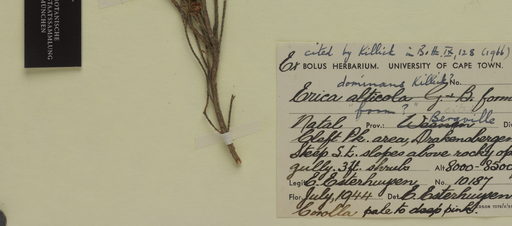 BOTANISCHE
STAATSSAMMLUNG
MÜNCHEN
cited by Killick in Both. IX, 128 (1966)
Ex BOLUS HERBARIUM. UNIVERSITY OF CAPE TOWN.
dominans Killick? No.
Erica alticola G & B. form
"form?"
Bergville
Natal Prov.: Di
Cleft Pk. area, Drakensbergen
Steep S.E. slopes above rocky
gully. 3ft shrub Alt 8000-8500
Legit E. Esterhuysen, No. 10187
Flor July, 1944 Det. E. Esterhuysen
Corolla pale to deep pink.